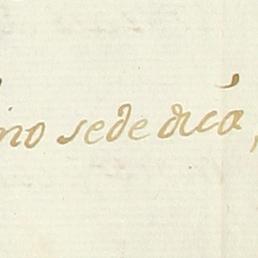 ino se dedicá,